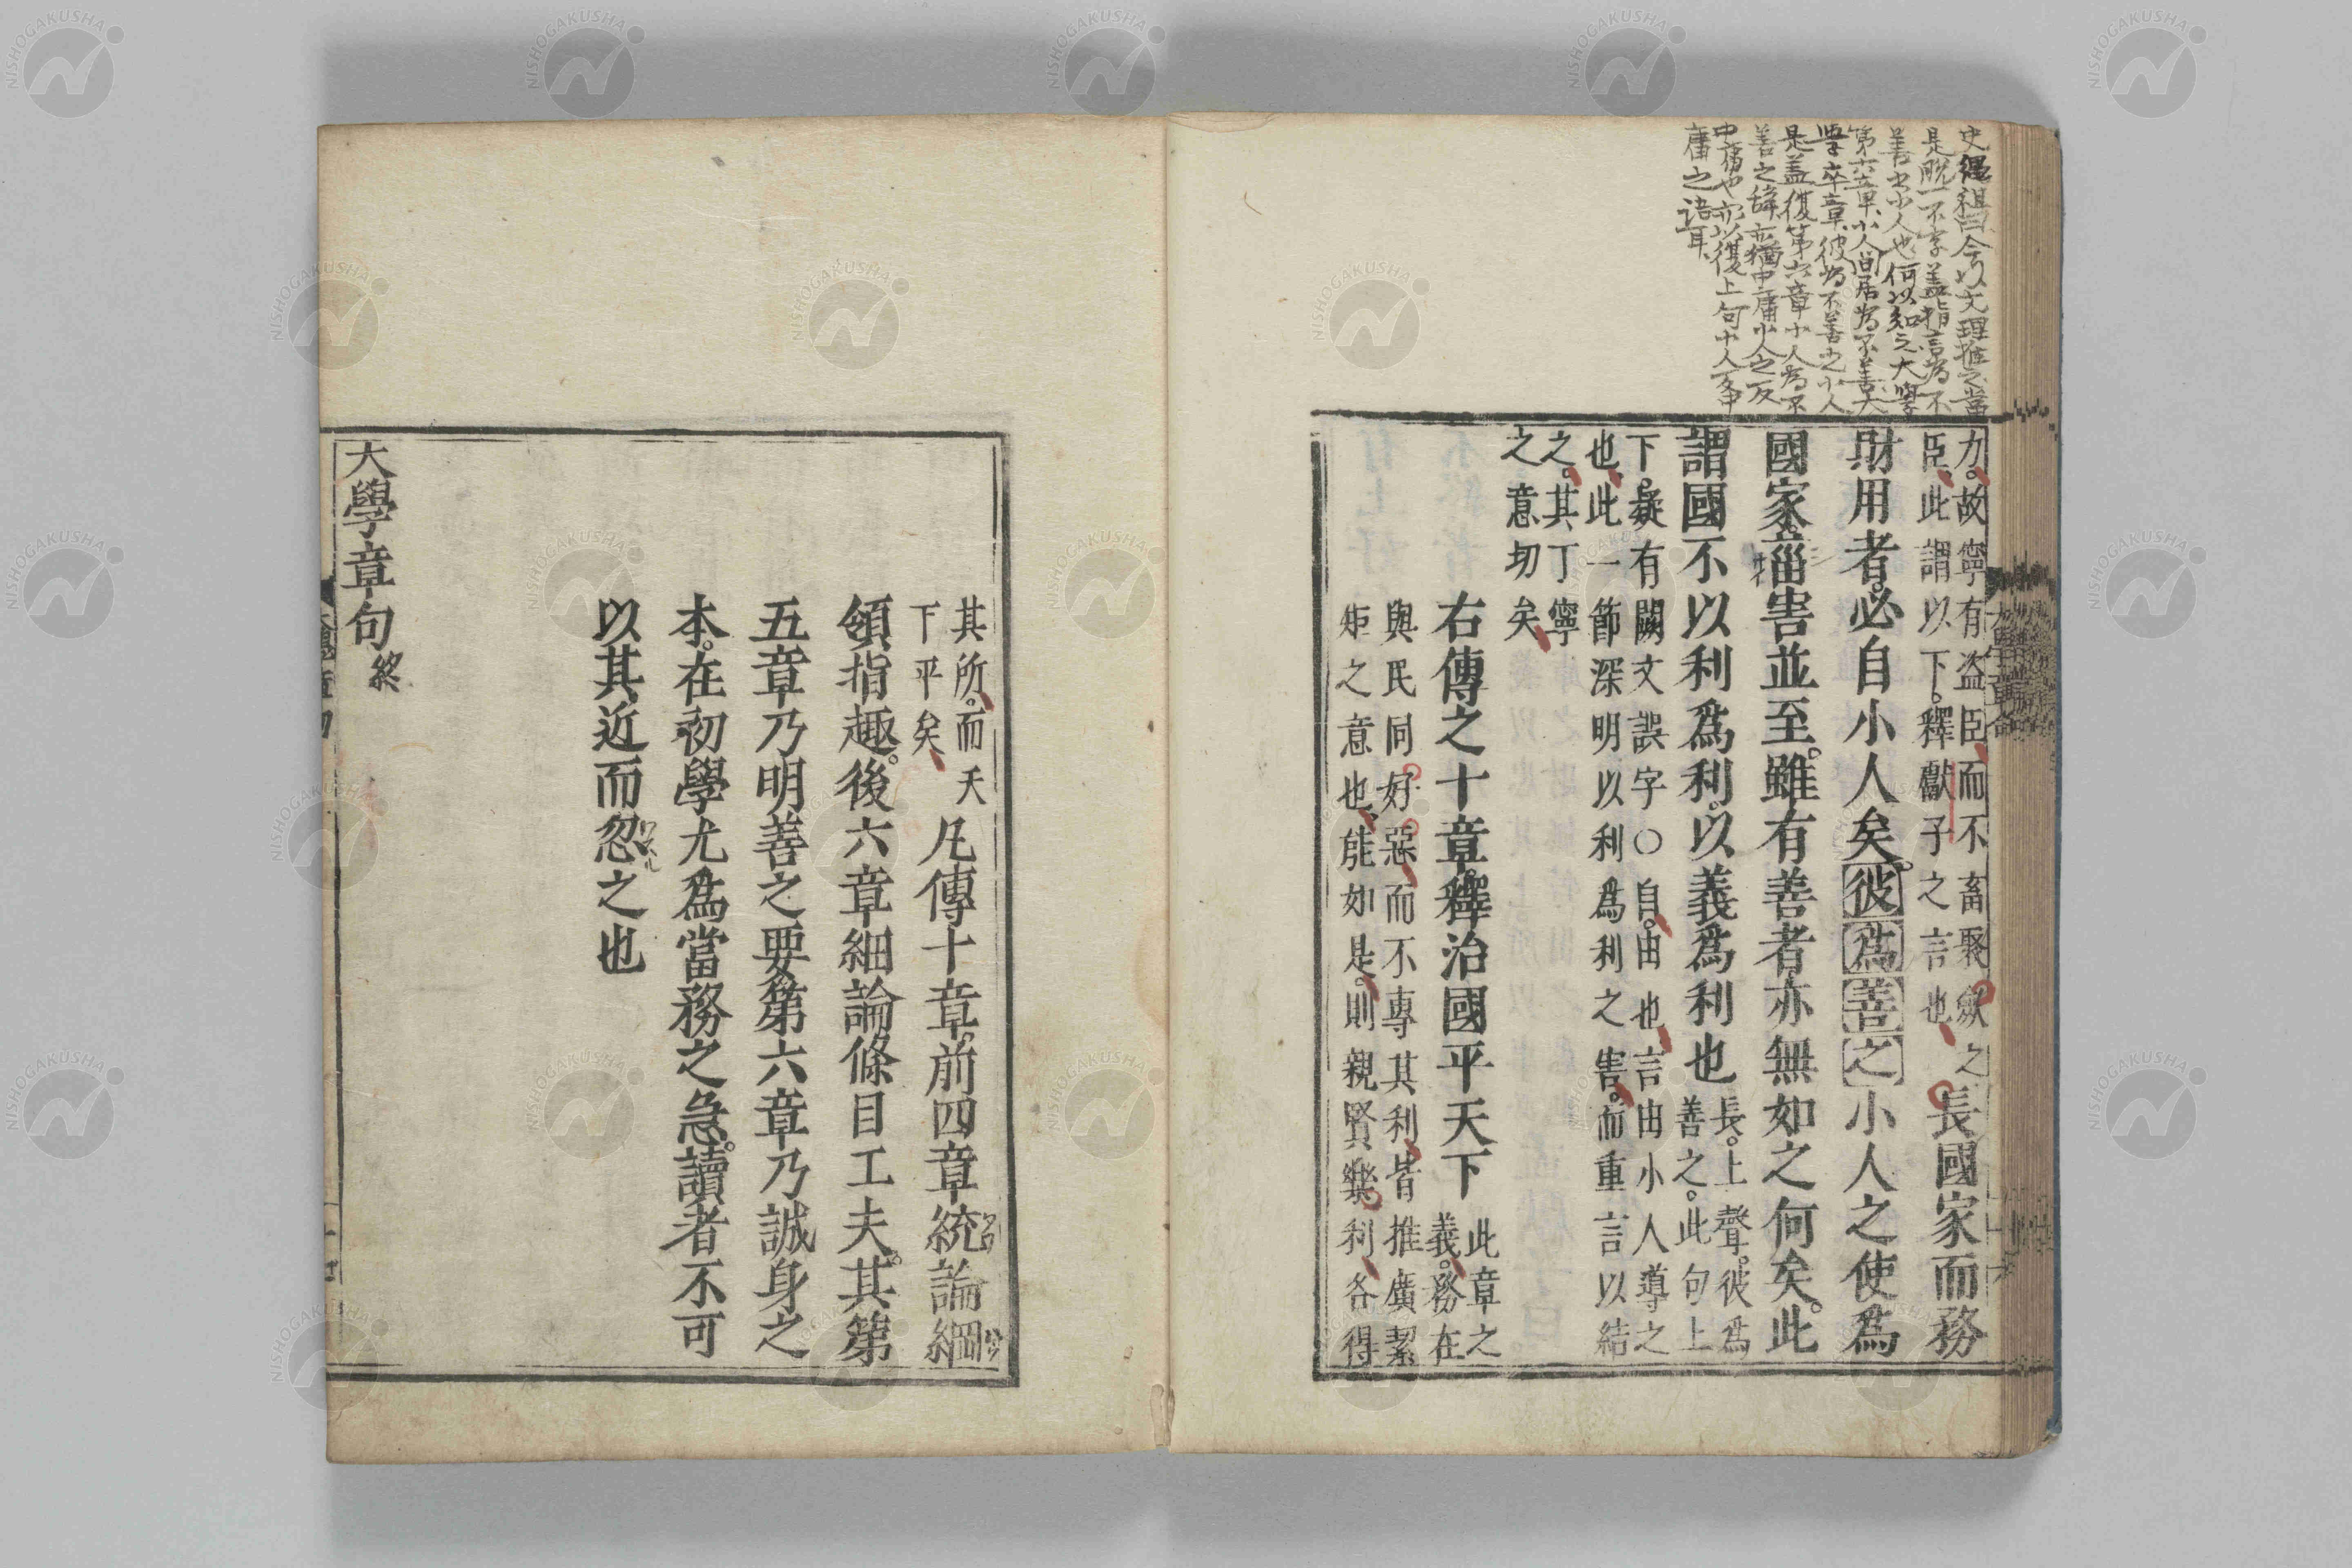 史纆祖曰今以文理推之當
是脫一不字蓋指言為不
善之小人也何以知之大學
第六章小人閒居為不善大
學卒章彼為不善之小人
是蓋復第六章小人為不
善之辞亦猶中庸小人之反
中庸也亦以復上句小人反中
庸之语耳
力。故寧有盗臣而不畜聚斂之
臣此謂以下。釋獻子之言也
長國家而務
財用者。必自小人矣。彼爲善之小人之使爲
國家。菑害並至。雖有善者亦無如之何矣。此
謂國不以利爲利。以義爲利也
長。上聲。彼爲
善之。此句上
下。疑有闕文誤字○自。由也言由小人導之
也此一節深明以利爲利之害。而重言以結
之。其丁寧
之意切矣
右傳之十章。釋治國平天下
此章之
義。務在
與民同好惡而不專其利皆推廣絜
矩之意也能如是。則親賢樂利各得
其所。而天
下平矣
凡傳十章。前四章統論綱
領指趣。後六章細論條目工夫。其第
五章乃明善之要第六章乃誠身之
本。在初學尤爲當務之急。讀者不可
以其近而忽之也
大學章句終
NISHOGAKUSHA